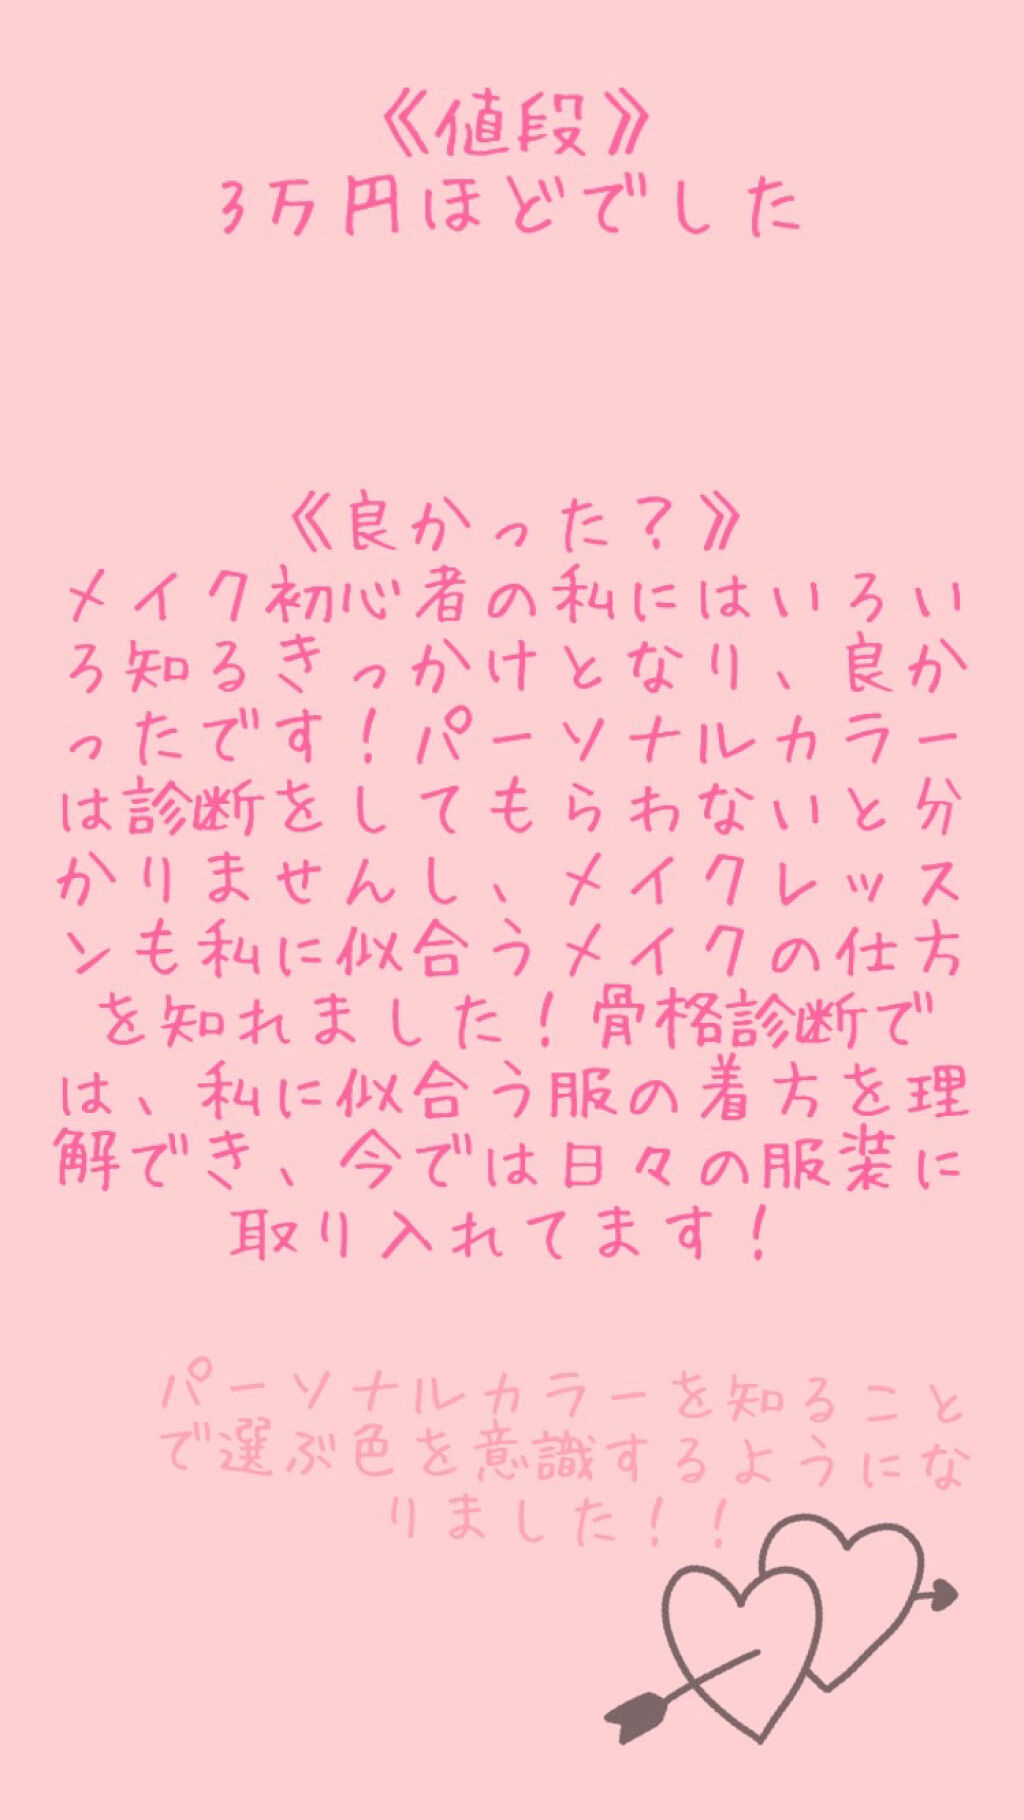 《値段》
3万円ほどでした
《良かった？》
メイク初心者の私にはいろい
ろ知るきっかけとなり、良か
ったです！パーソナルカラー
は診断をしてもらわないと分
かりませんし、メイクレッス
ンも私に似合うメイクの仕方
を知れました！骨格診断で
は、私に似合う服の着方を理
解でき、今では日々の服装に
取り入れてます！
パーソナルカラーを知ること
で選ぶ色を意識するようにな
りました！！